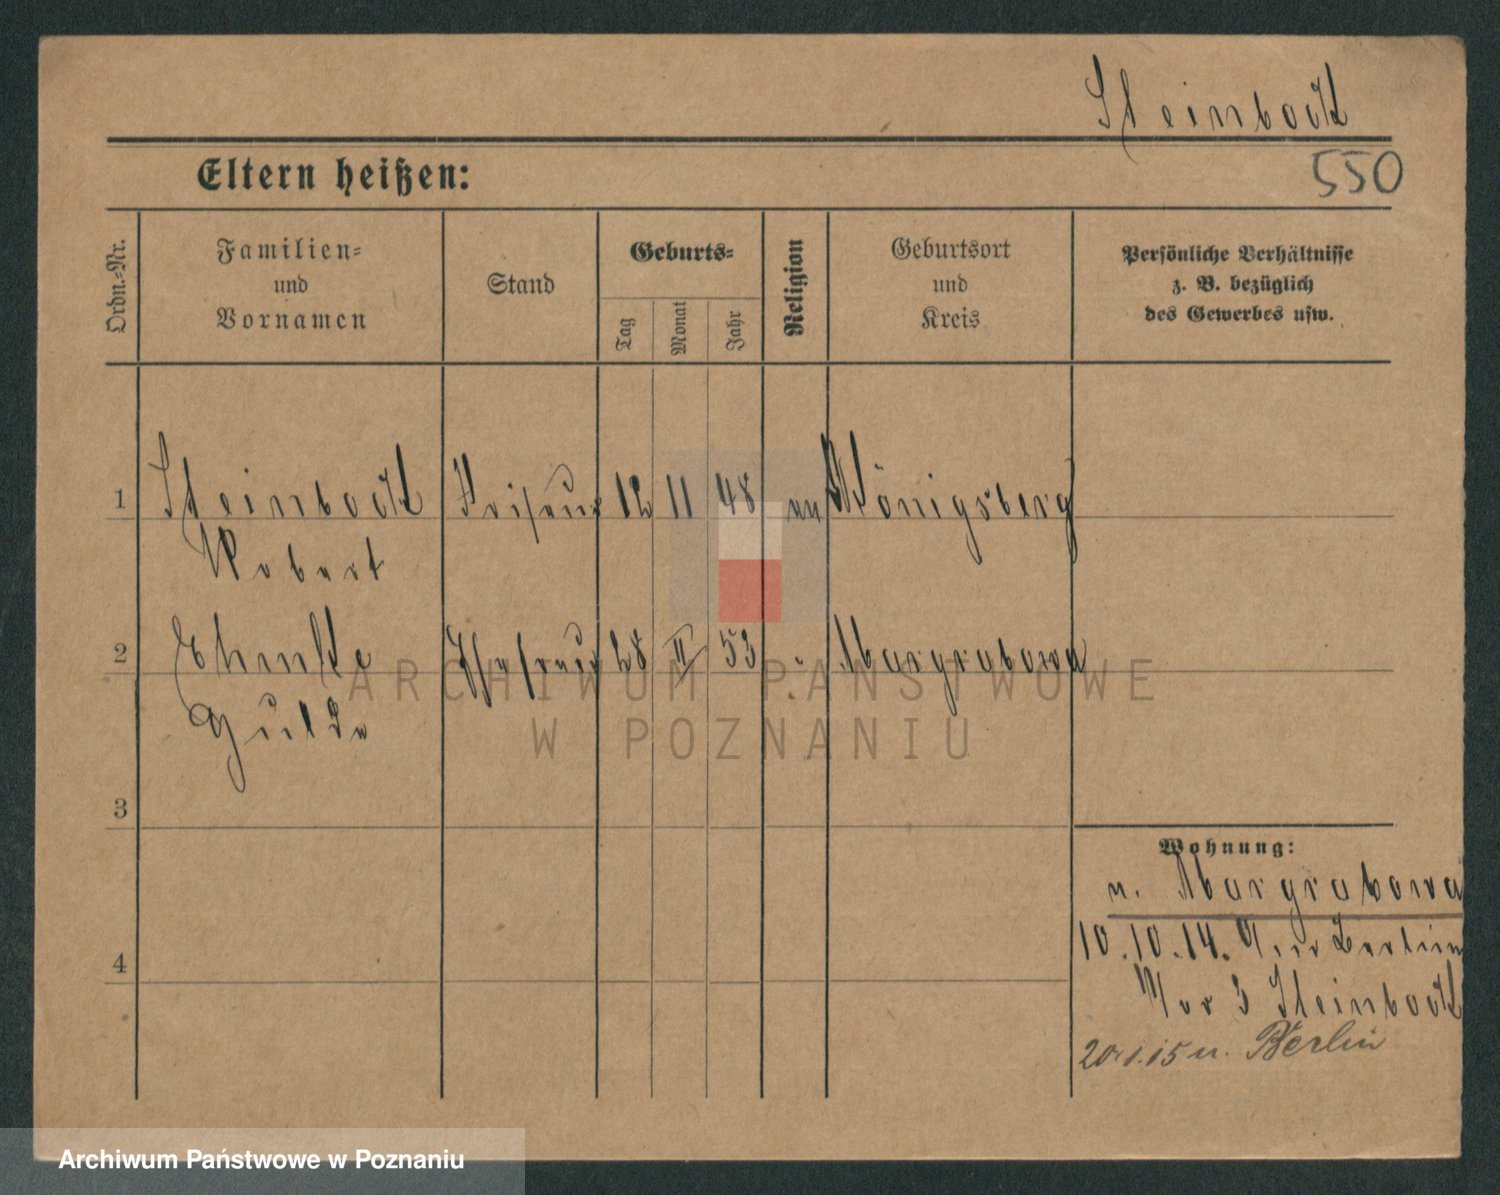 Steinbock
550
Eltern heißen:
Ordn.-Nr.
Familien-
und
Vornamen
Stand
Geburts-
Tag
Monat
Jahr
Religion
Geburtsort
und
Kreis
Persönliche Verhältnisse
z. B. bezüglich
des Gewerbes usw.
1 Steinbock Friseur 12 11 48 Königsberg
Robert
2 Ehefrau 28 II 53 " Margrabowa
3
4
Wohnung:
n. Margrabowa
10.10.14. Berlin
3 Steinbock
20.1.15 n. Berlin
ARCHIWUM PAŃSTWOWE
W POZNANIU
Archiwum Państwowe w Poznaniu